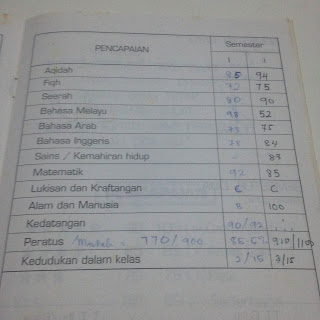 PENCAPAIAN Semester
1 2
Aqidah 85 94
Fiqh 72 75
Seerah 80 90
Bahasa Melayu 98 52
Bahasa Arab 75
Bahasa Inggeris 78 84
Sains / Kemahiran hidup - 83
Matematik 92 85
Lukisan dan Kraftangan C C
Alam dan Manusia B 100
Kedatangan 90/92
Peratus / Markah = 770/900 910/1100
Kedudukan dalam kelas 2/15 7/15